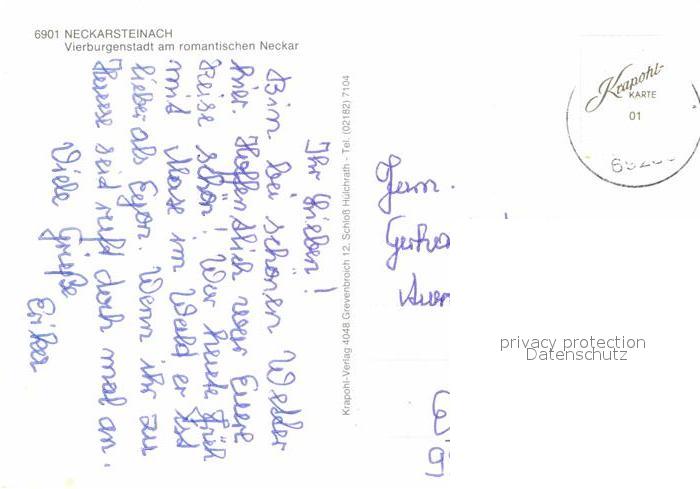 6901 NECKARSTEINACH
Vierburgenstadt am romantischen Neckar
Ihr Lieben!
Bin bei schönen Wetter
hier. Hoffentlich war Euere
Reise schön! War heute früh
mit Mose im Wald er ist
lieber als Egon. Wenn ihr zu
Hause seid ruft doch mal an.
Viele Grüße
Erika
Krapohl-Verlag 4048 Grevenbroich 12, Schloß Hülchrath - Tel. (02182) 7104
Krapohl-
KARTE
01
Fam.
privacy protection
Datenschutz